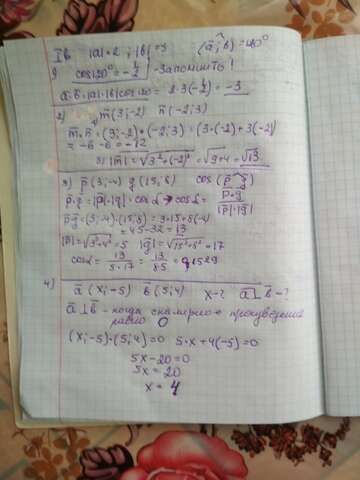 I в |a|=2; |b|=3 (a;b)=120°
1) cos120°=-1/2 -Запомнить!
a·b=|a|·|b|cos120=2·3(-1/2)=-3
2) m(3;-2) n(-2;3)
m·n=(3;-2)·(-2;3)=(3·(-2)+3(-2)
=-6-6=-12
|m|=√3²+(-2)²=√9+4=√13
3) p(3;-4) q(15;8) cos(p^q)
p·q=|p|·|q|·cosα → cosα=p·q/|p|·|q|
p·q=(3;-4)·(15;8)=3·15+8(-4)
=45-32=13
|p|=√3²+4²=5 |q|=√15²+8²=17
cosα=13/5·17=13/85=0,1529
4) a(x;-5) b(5;4) x-? a⊥b-?
a⊥b - когда скалярное произведение
равно 0
(x;-5)·(5;4)=0 5·x+4(-5)=0
5x-20=0
5x=20
x=4